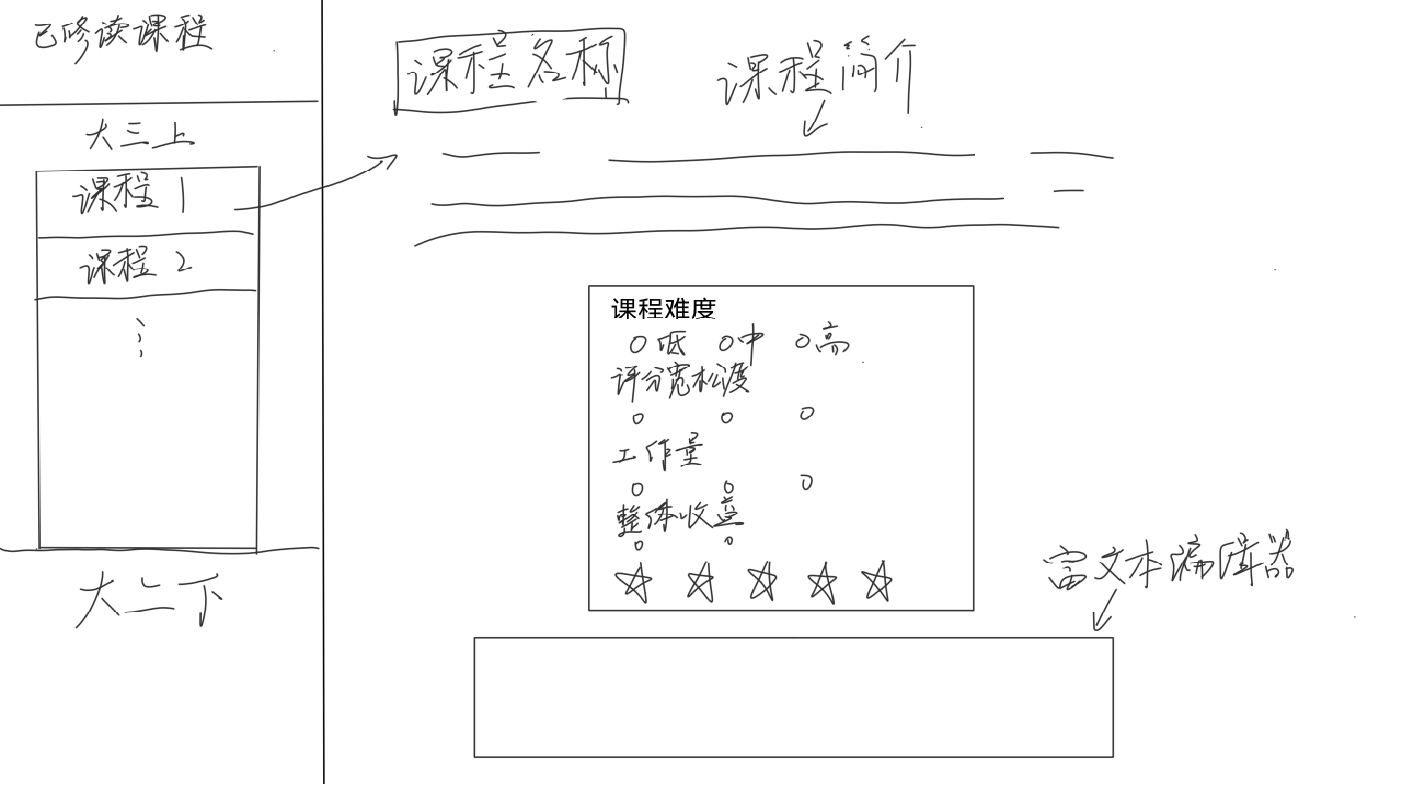 已修读课程
大三上
课程 1
课程 2
大二下
课程名称
课程简介
课程难度
低 中 高
评分宽松度
工作量
整体收益
富文本编辑器